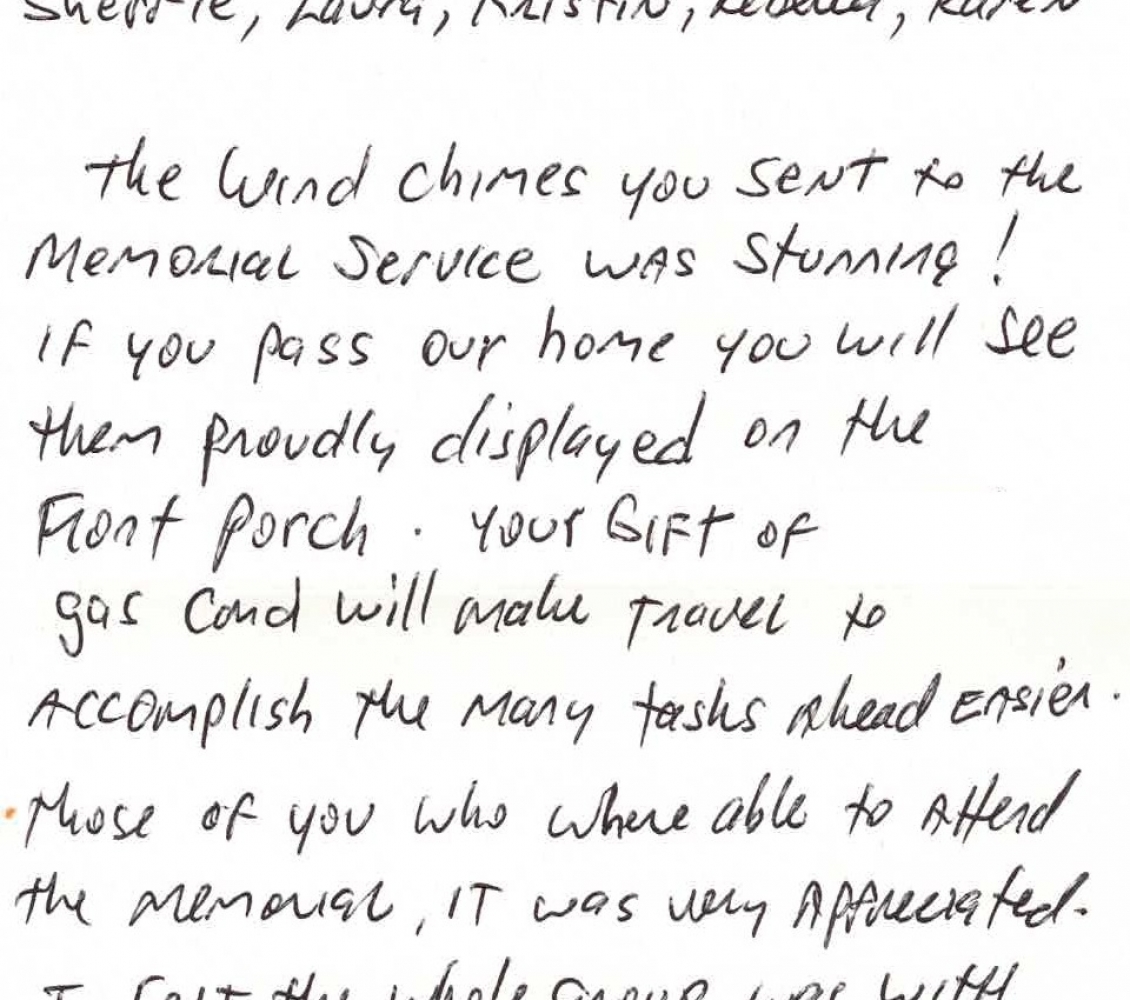 Sherrie, Laura, Kristin, Rebecca, Karen
the Wind Chimes you SENT to the
Memorial Service was Stunning!
IF you pass our home you will see
them proudly displayed on the
Front Porch. Your GIFT OF
gas Card will make Travel to
Accomplish the Many tasks Ahead Easier.
Those of you who where able to Attend
the Memorial, IT was very Appreciated.
I felt the whole Group was with